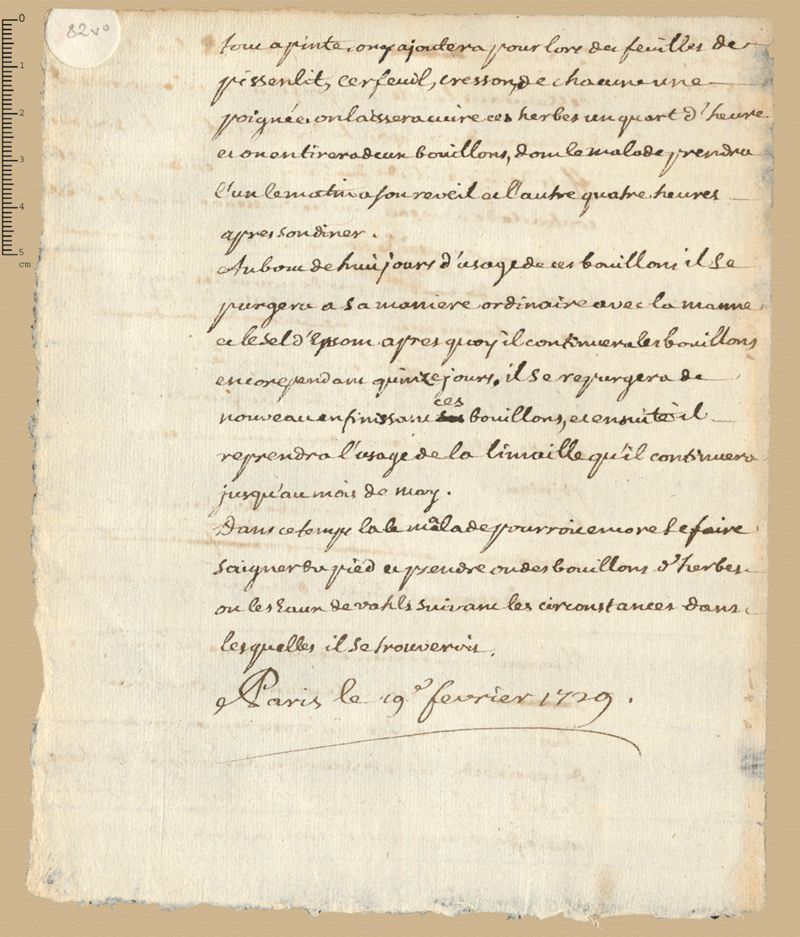 82 v°
tout a pinte. on y ajoutera pour lors des feuilles de
pissenlit, cerfeuil, cresson, de chacune une
poignée. on laissera cuire ces herbes un quart d'heure
et on en tirera deux bouillons, dont le malade prendra
l'un le matin a son reveil et l'autre quatre heures
apres son diner.
Au bout de huit jours d'usage de ces bouillons il se
purgera a sa maniere ordinaire avec la manne
et le sel d'Epsom apres quoy il continuera les bouillons
encore pendant quinze jours. il se repurgera de
nouveau en finissant ces bouillons, et ensuite il
reprendra l'usage de la limaille qu'il continuera
jusqu'au mois de may.
Dans ce temps la le malade pourroit encore se faire
saigner du pied et prendre ou des bouillons d'herbes
ou les Eaux de vahls suivant les circonstances dans
lesquelles il se trouveroit.
A Paris le 19e fevrier 1729.
0
1
2
3
4
5
cm